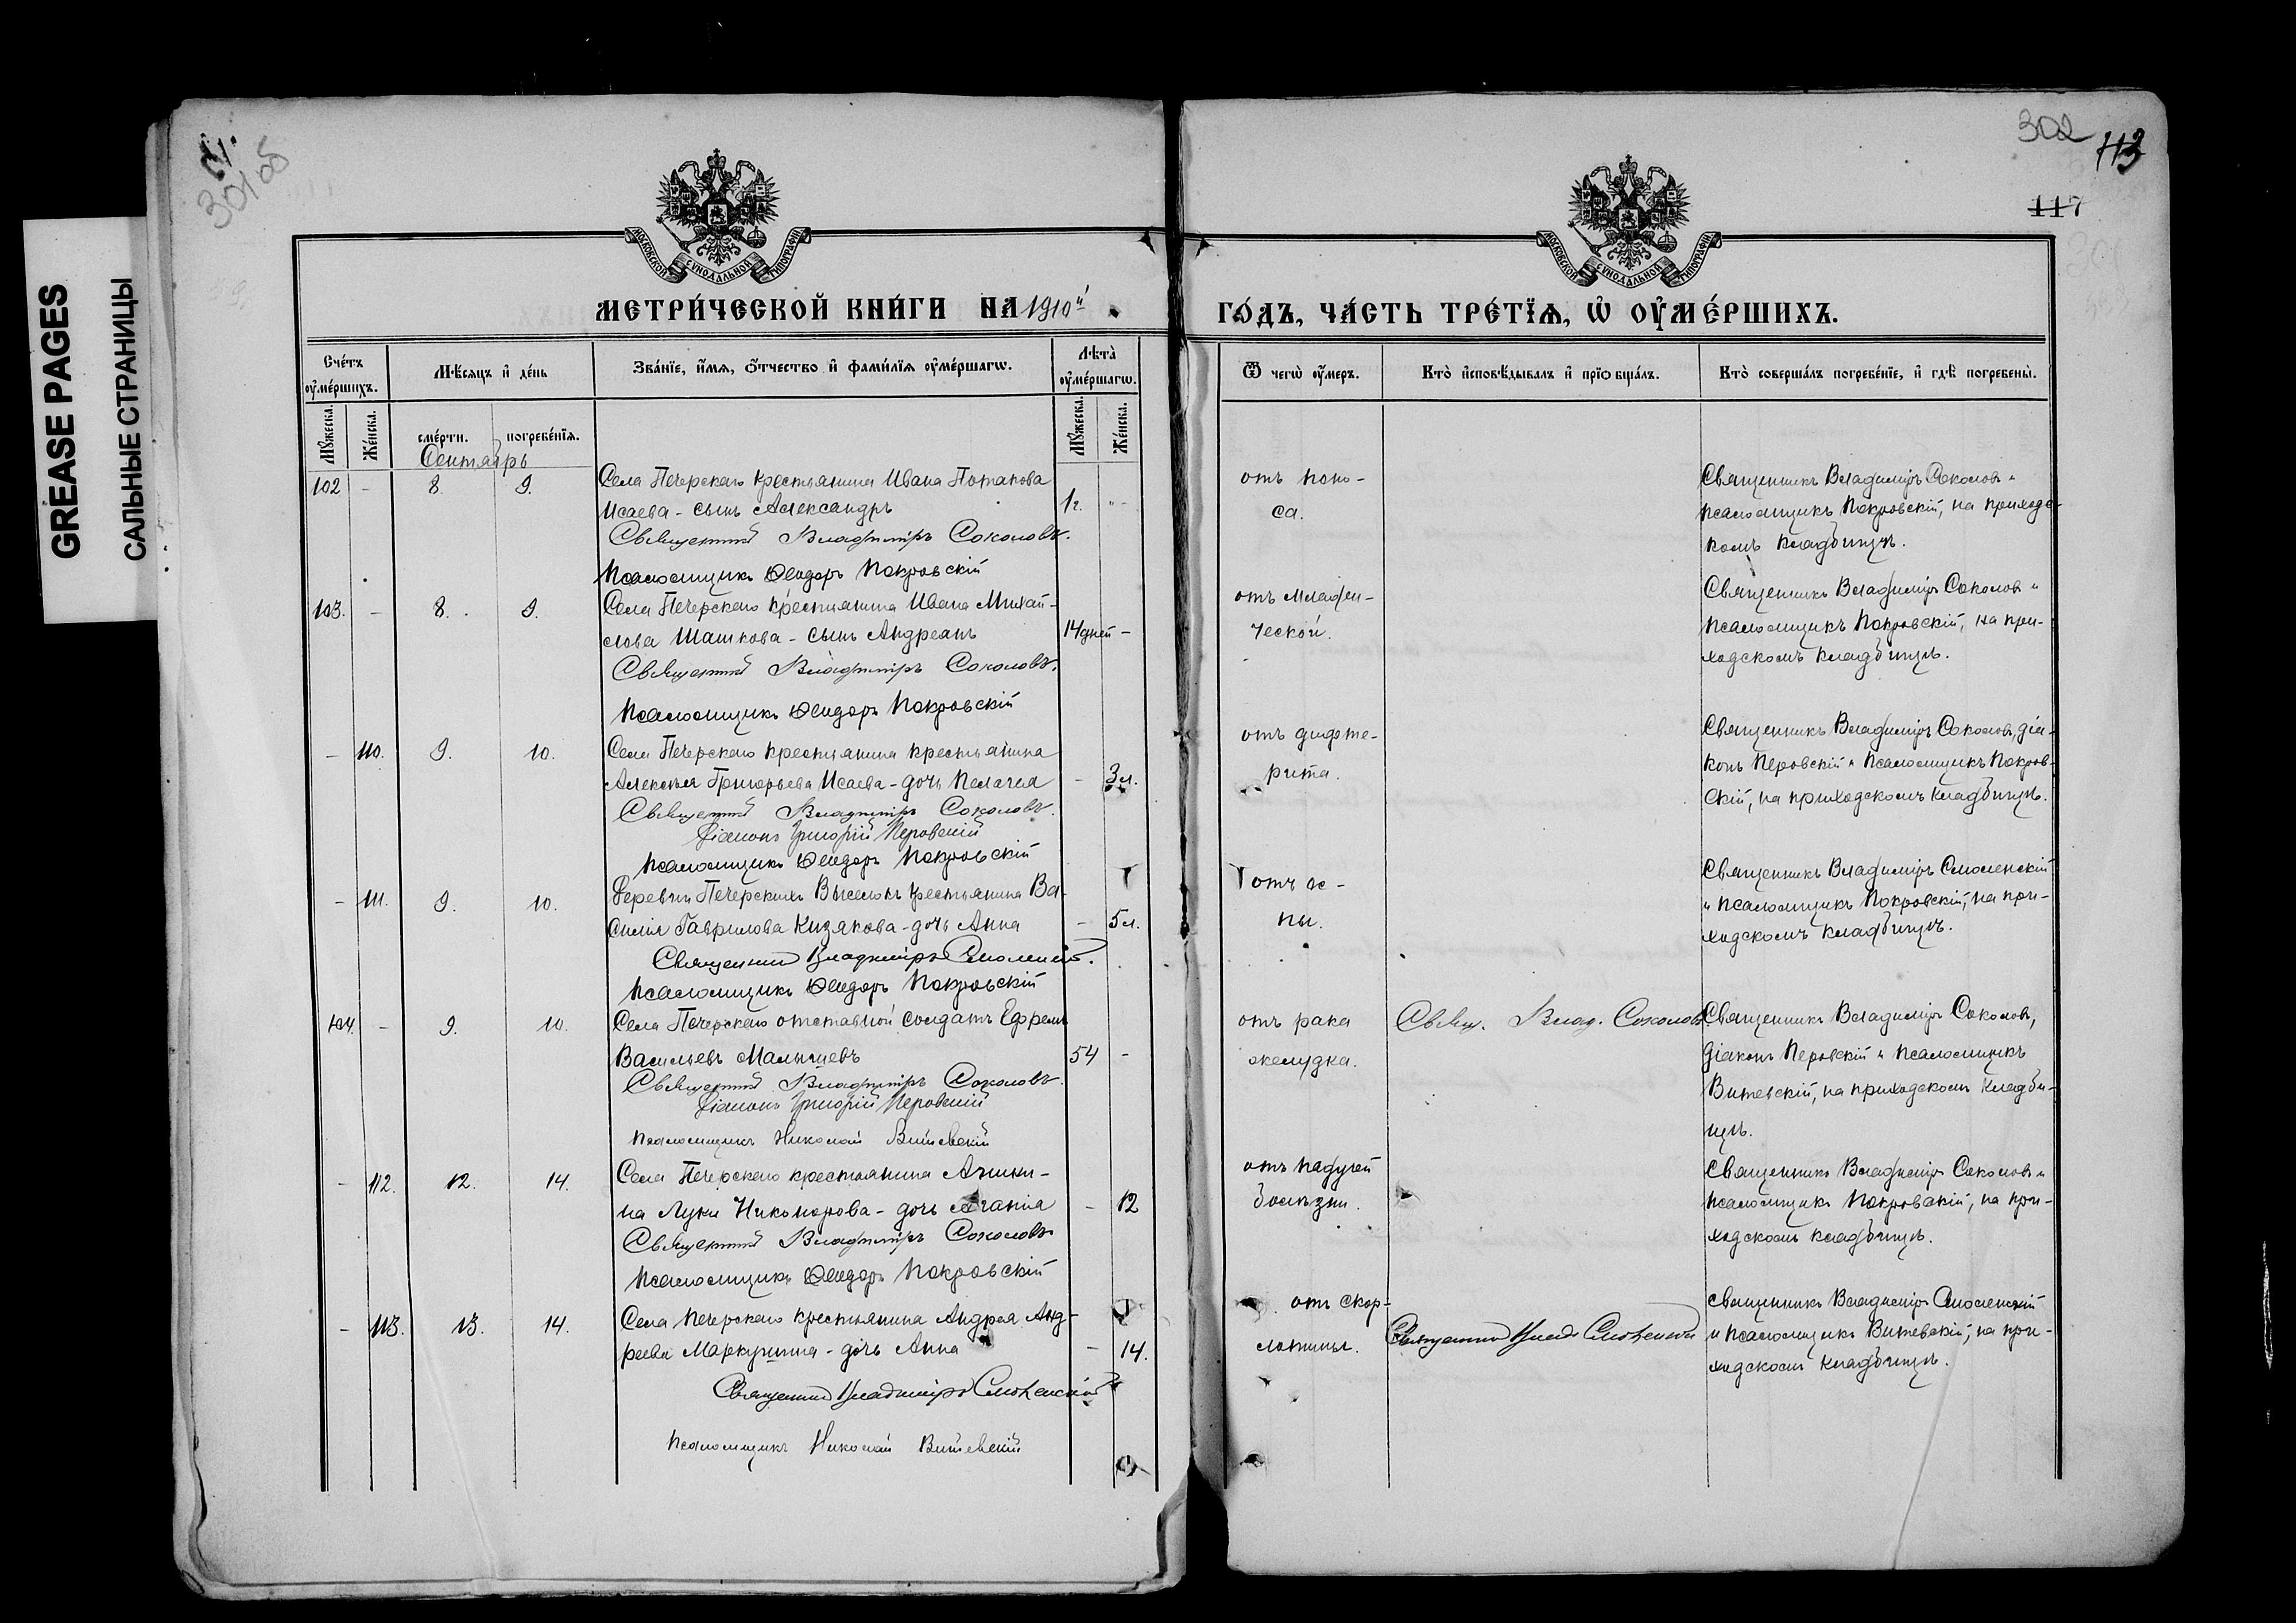 GREASE PAGES
САЛЬНЫЕ СТРАНИЦЫ
301об
302
113
117
МОСКОВСКОЙ СѴНОДАЛЬНОЙ ТИПОГРАФІИ
МОСКОВСКОЙ СѴНОДАЛЬНОЙ ТИПОГРАФІИ
МЕТРИ́ЧЕСКОЙ КНИ́ГИ НА 1910й
ГО́ДЪ, ЧА́СТЬ ТРЕ́ТІѦ, Ѡ҆ ОУ҆МЕ́РШИХЪ.
Сче́тъ оу҆ме́ршихъ.
Мѣ́сяцъ и҆ де́нь
Зва́нїе, и҆́мѧ, о҆́тчество и҆ фами́лїѧ оу҆ме́ршагѡ.
Лѣта̀ оу҆ме́ршагѡ.
Ѿ чегѡ̀ оу҆́меръ.
Кто̀ и҆сповѣ́дывалъ и҆ прїѡбща́лъ.
Кто̀ соверша́лъ погребе́нїе, и҆ гдѣ̀ погребены̀.
Мꙋжеска. Же́нска.
сме́рти. погребе́нїѧ.
Мꙋжеска. Же́нска.
Сентябрь
102 - 8. 9. Села Печерскаго крестьянина Ивана Потапова
Исаева - сынъ Александръ 1г. "-
Священникъ Владиміръ Соколовъ.
Псаломщикъ Ѳеодоръ Покровскій
отъ поно-
са.
Священникъ Владиміръ Соколовъ и
псаломщикъ Покровскій, на приходс-
комъ кладбищѣ.
103. - 8. 9. Села Печерскаго крестьянина Ивана Михай-
лова Шашкова - сынъ Андреанъ 14 дней -
Священникъ Владиміръ Соколовъ.
Псаломщикъ Ѳеодоръ Покровскій
отъ младен-
ческой.
Священникъ Владиміръ Соколовъ и
псаломщикъ Покровскій, на при-
ходскомъ кладбищѣ.
- 110. 9. 10. Села Печерскаго крестьянина крестьянина
Алексѣя Григорьева Исаева - дочь Пелагея - 3 л.
Священникъ Владиміръ Соколовъ.
Діаконъ Григорій Перовскій
Псаломщикъ Ѳеодоръ Покровскій
отъ дифте-
рита.
Священникъ Владиміръ Соколовъ, діа-
конъ Перовскій и псаломщикъ Покров-
скій, на приходскомъ кладбищѣ.
- 111. 9. 10. Деревни Печерскихъ Выселокъ крестьянина Ва-
силія Гаврилова Кизякова - дочь Анна - 5 л.
Священникъ Владиміръ Смоленскій.
Псаломщикъ Ѳеодоръ Покровскій
отъ ос-
пы.
Священникъ Владиміръ Смоленскій
и псаломщикъ Покровскій, на при-
ходскомъ кладбищѣ.
104. - 9. 10. Села Печерскаго отставной солдатъ Ефремъ
Васильевъ Малышевъ 54 -
Священникъ Владиміръ Соколовъ.
Діаконъ Григорій Перовскій
Псаломщикъ Николай Витевскій
отъ рака
желудка.
Свящ. Влад. Соколовъ
Священникъ Владиміръ Соколовъ,
діаконъ Перовскій и псаломщикъ
Витевскій, на приходскомъ кладби-
щѣ.
- 112. 12. 14. Села Печерскаго крестьянина Аники-
на Луки Никонорова - дочь Агапія - 12
Священникъ Владиміръ Соколовъ
Псаломщикъ Ѳеодоръ Покровскій
отъ падучей
болѣзни.
Священникъ Владиміръ Соколовъ и
псаломщикъ Покровскій, на при-
ходскомъ кладбищѣ.
- 113. 13. 14. Села Печерскаго крестьянина Андрея Анд-
реева Маркушина - дочь Анна - 14.
Священникъ Владиміръ Смоленскій
Псаломщикъ Николай Витевскій
отъ скар-
латины.
Священникъ Влад. Смоленскій
Священникъ Владиміръ Смоленскій
и псаломщикъ Витевскій, на при-
ходскомъ кладбищѣ.